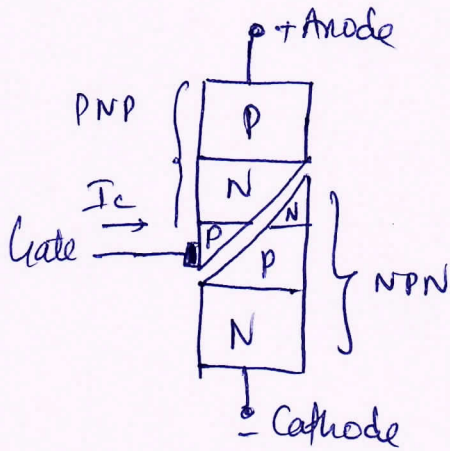 + Anode
PNP
P
N
Ic
N
P
Gate
P
NPN
N
- Cathode